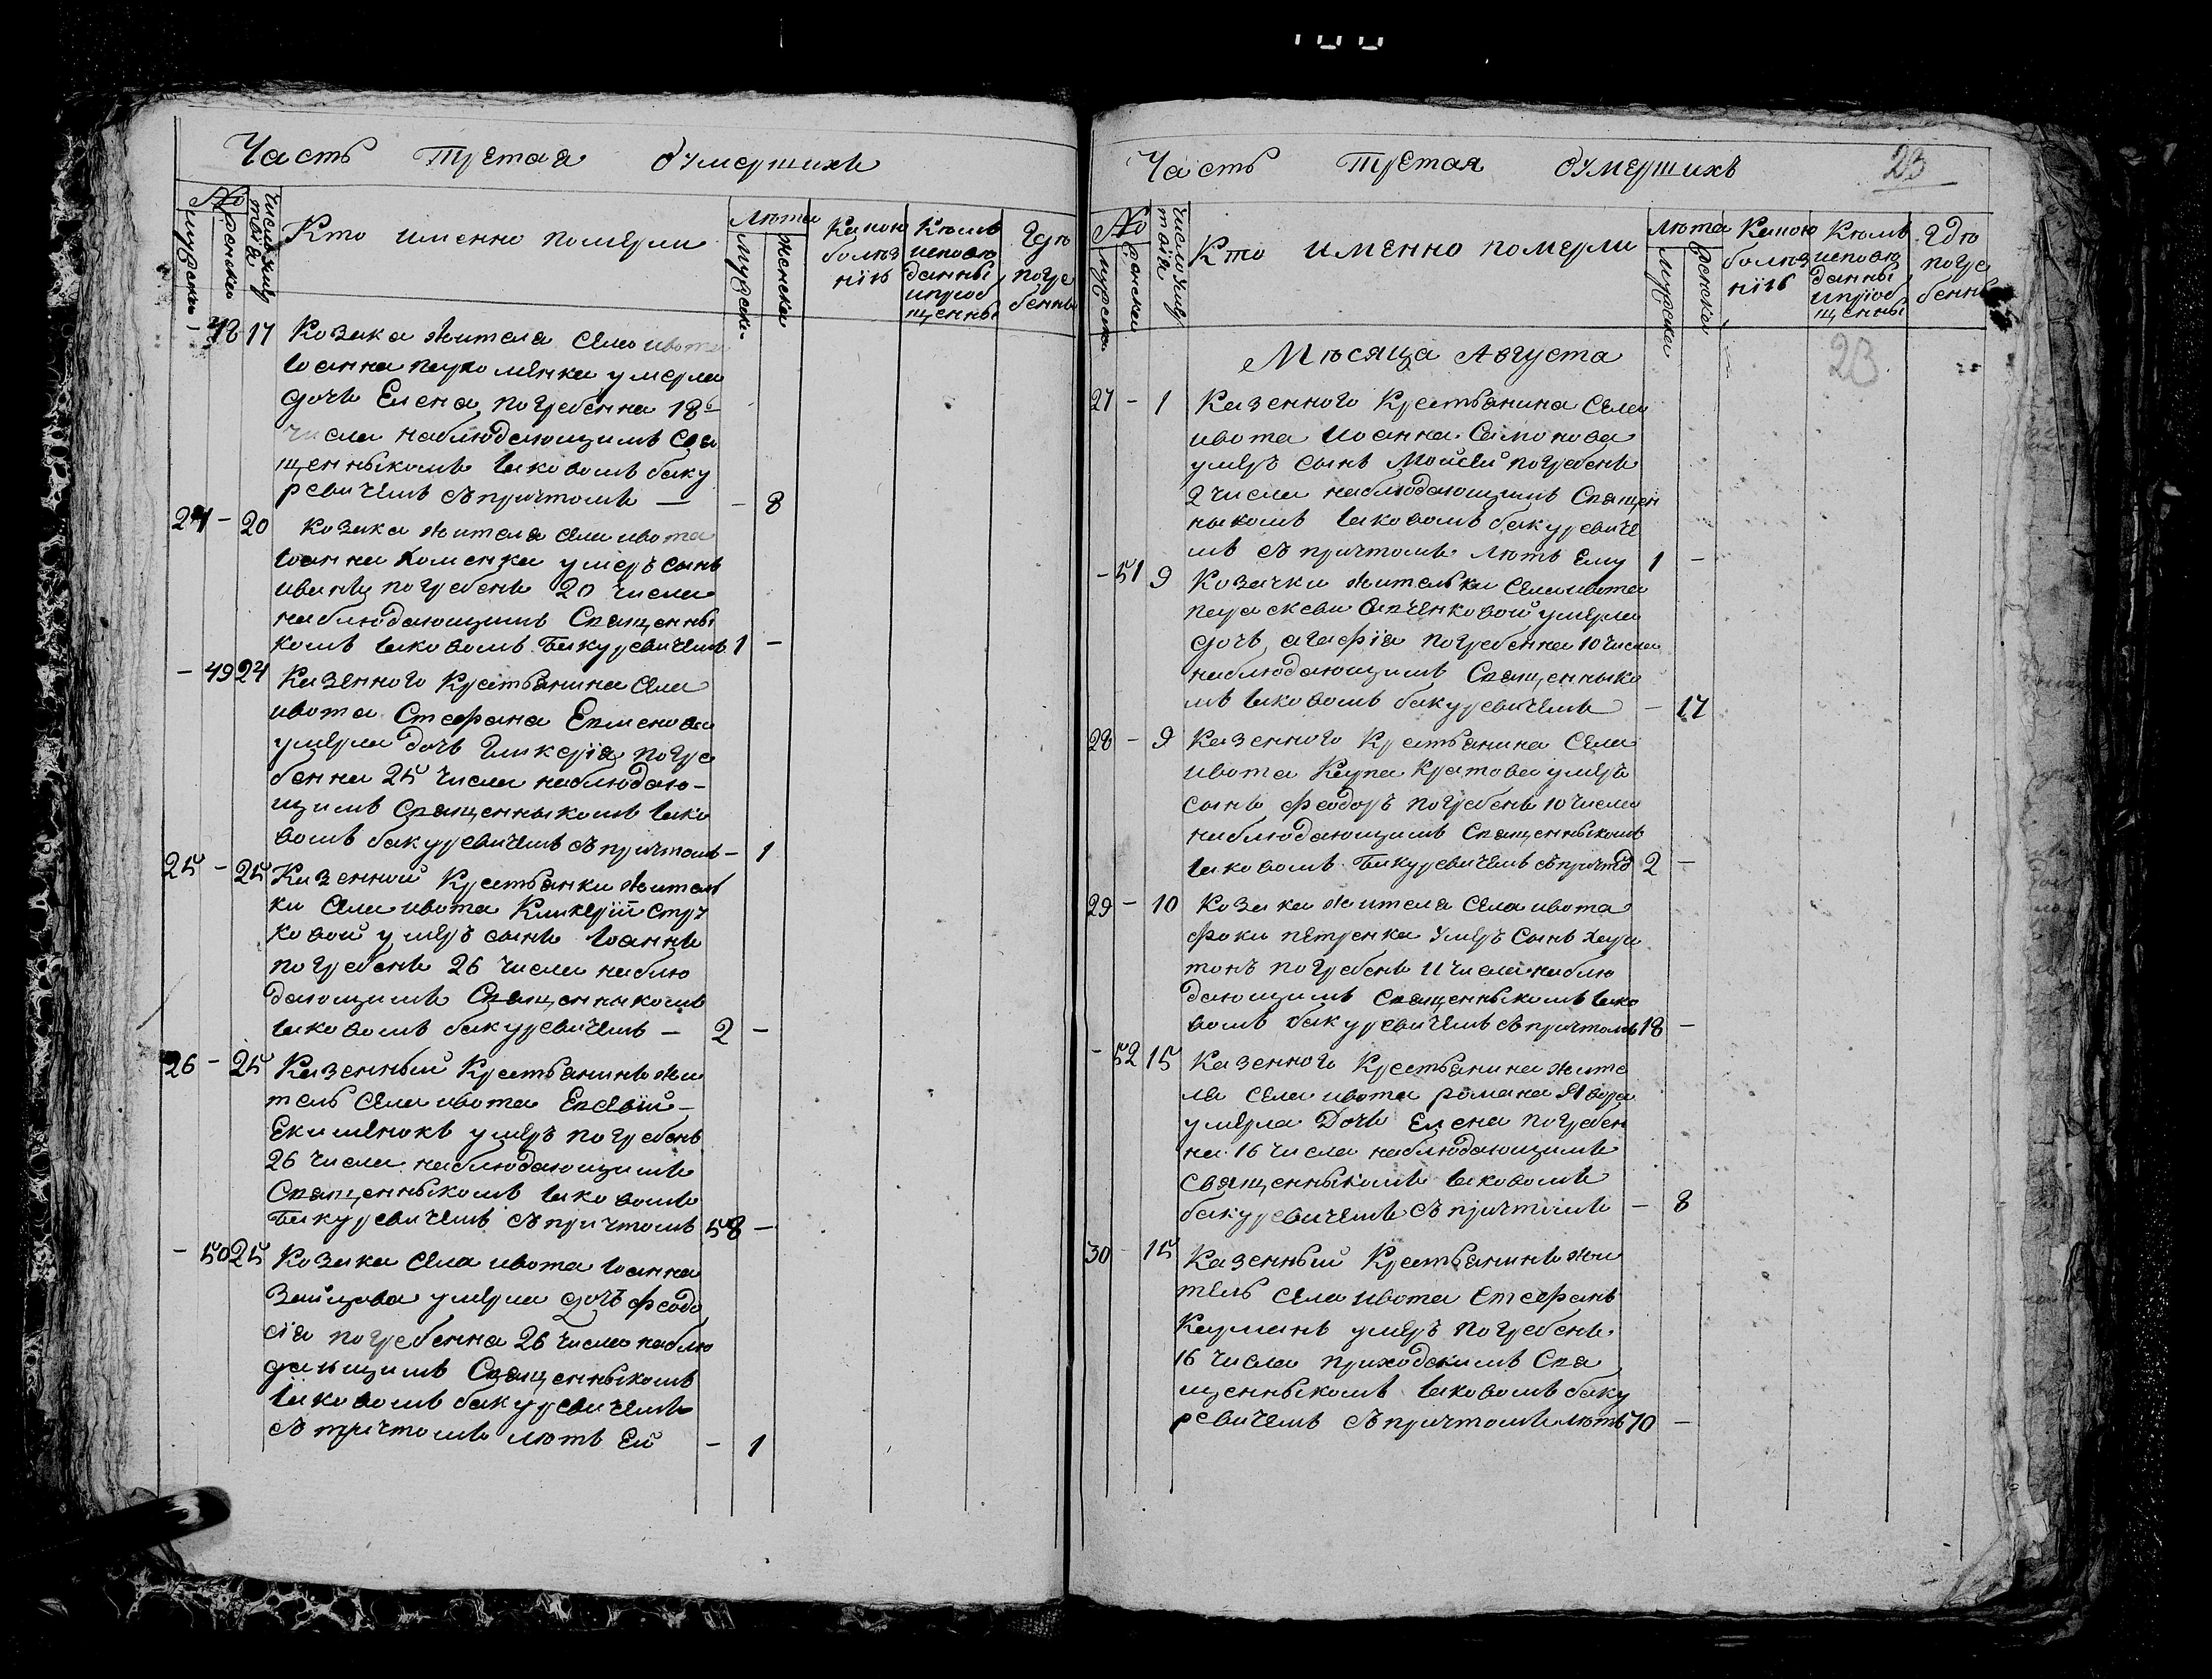 Часть Третая Оумершихъ
№
мужеска
женска
Число умертвія
Кто именно помѣрли
Лѣта
Мужеска
Женска
Какою
болѣз
нію
Кѣмъ
исповѣ
данны
и пріоб
щенны
Гдѣ
погре
бенны
48 17 Козака жителя Села ивота
Іоанна пархоменка умерла
дочь Елена, погребенна 18º
числа наблюдающимъ Свя
щенныкомъ Іаковомъ баку
ревичемъ съ причтомъ — - 8
24 - 20 Козака жителя Села ивота
Іоанна Хоменка умеръ сынъ
иванъ погребенъ 20 числа
наблюдающимъ Священны
комъ Іаковомъ Бакуревичемъ 1 -
- 49 24 Казенного Крестьянина Села
ивота Стефана
умерла дочь Гликерія, погре
бенна 25 числа наблюдаю-
щимъ Священныкомъ Іако
вомъ бакуревичемъ съ причтомъ - 1
25 - 25 Казенной Крестьянки житель
ки Села ивота Кликеріи
ковой умеръ сынъ Іоаннъ
погребенъ 26 числа наблю
дающимъ Священныкомъ
Іаковомъ бакуревичемъ - 2 -
26 - 25 Казенный Крестьянинъ жи
тель Села ивота Евсевій
Екименокъ умеръ погребенъ
26 числа наблюдающимъ
Священныкомъ Іаковомъ
Бакуревичемъ съ причтомъ 58 -
- 50 25 Козака Села ивота Іоанна
Зайцова умерла дочь феодо
сія погребенна 26 числа наблю
дающимъ Священныкомъ
Іаковомъ бакуревичемъ
съ причтомъ лѣтъ Ей - 1
Часть Третая Оумершихъ
23
№
мужеска
женска
Число умертвія
Кто именно померли
лѣта
Мужеска
женска
Какою
болѣз
нію
Кѣмъ
исповѣ
данны
и пріоб
щенны
Гдѣ
погре
бенны
Мѣсяца Августа
23
27 - 1 Казенного Крестьянина Села
ивота Иоанна Самохова
умеръ сынъ Мойсей погребенъ
2 числа наблюдающимъ Священ
ныкомъ Іаковомъ бакуревиче
мъ съ причтомъ лѣтъ Ему 1 -
- 51 9 Козачки жительки Села ивота
параскеви умерла
дочь агафія погребенна 10 числа
наблюдающимъ Священныко
мъ Іаковомъ бакуревичемъ - 17
28 - 9 Казенного Крестьянина Села
ивота Карпа Кратова умеръ
сынъ феодоръ погребенъ 10 числа
наблюдающимъ Священныкомъ
Іаковомъ Бакуревичемъ съ причто 2 -
29 - 10 Козака жителя Села ивота
фоки пѣтренка Умеръ Сынъ хари
тонъ погребенъ 11 числа наблю
дающимъ Священныкомъ Іако
вомъ бакуревичемъ съ причтомъ 18 -
- 52 15 Казенного Крестьянина жите
ля Села ивота романа Явора
умерла Дочь Елена погребен
на 16 числа наблюдающимъ
Священныкомъ Іаковомъ
бакуревичемъ съ причтомъ - 8
30 - 15 Казенный Крестьянинъ жи
тель Села ивота Стефанъ
Карманъ умеръ погребенъ
16 числа приходскимъ Свя
щенныкомъ Іаковомъ баку
ревичемъ съ причтомъ лѣтъ 70 -